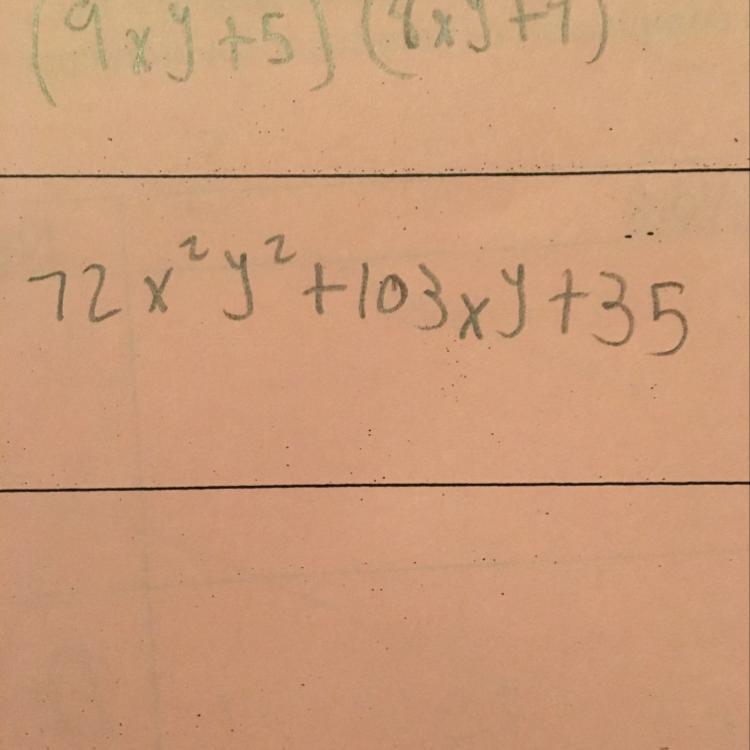 (9xy+5)(8xy+7)
72x²y²+103xy+35